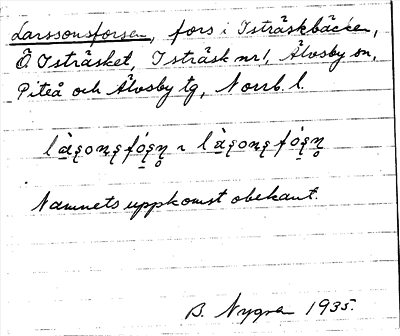 Larssonsforsen, fors i Isträskbäcken,
Ö Isträsket, Isträsk nr 1, Älvsby sn,
Piteå och Älvsby tg, Norrb. l.
Namnets uppkomst obekant.
B. Nygren 1935.